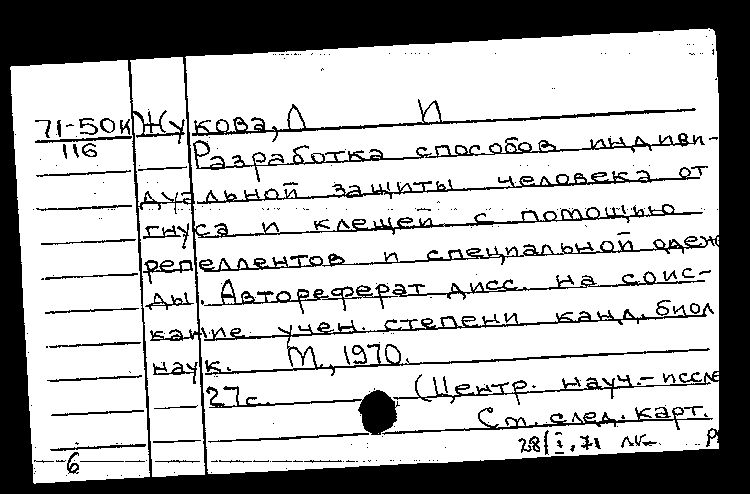 71-50к Жукова, Л И
116 Разработка способов индиви-
дуальной защиты человека от
гнуса и клещей с помощью
репеллентов и специальной одеж
ды. Автореферат дисс. на соис-
кание учен. степени канд. биол
наук. М., 1970.
27с. (Центр. науч.-иссле
См. след. карт.
28/I.71
6